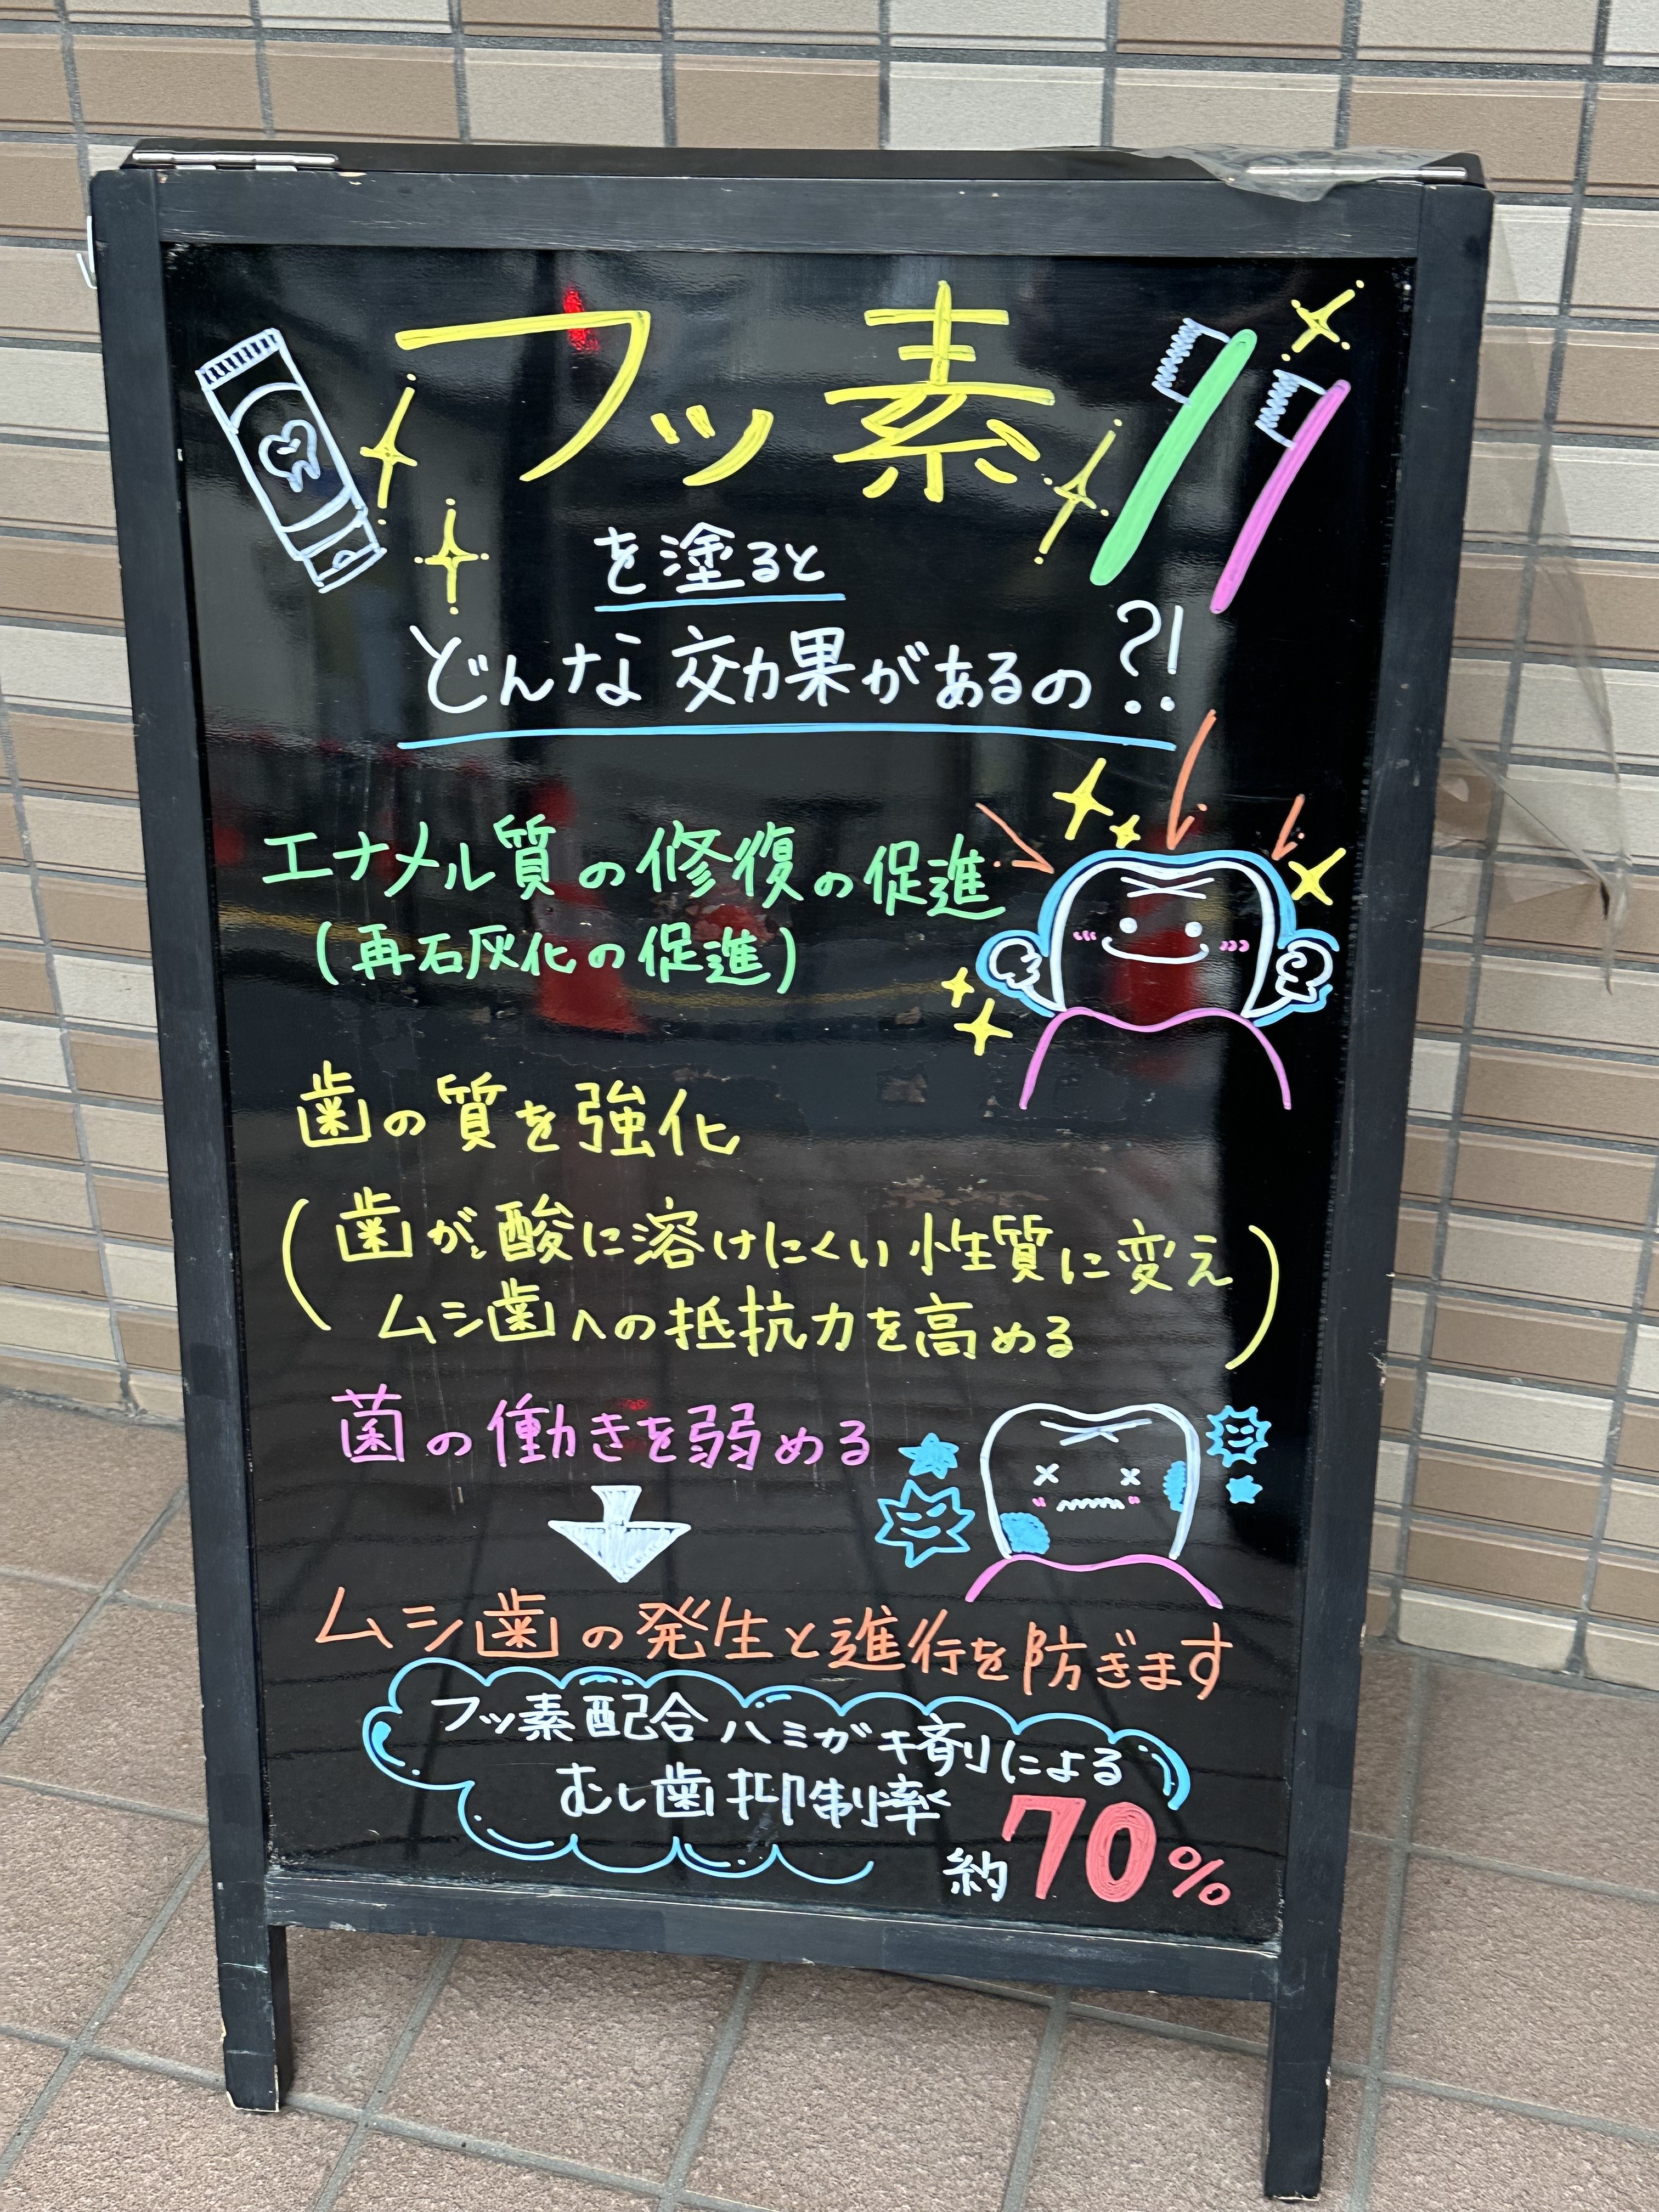 フッ素
を塗ると
どんな効果があるの?!
エナメル質の修復の促進
(再石灰化の促進)
歯の質を強化
(歯が酸に溶けにくい性質に変え
ムシ歯への抵抗力を高める)
菌の働きを弱める
ムシ歯の発生と進行を防ぎます
フッ素配合ハミガキ剤による
むし歯抑制率
約70%